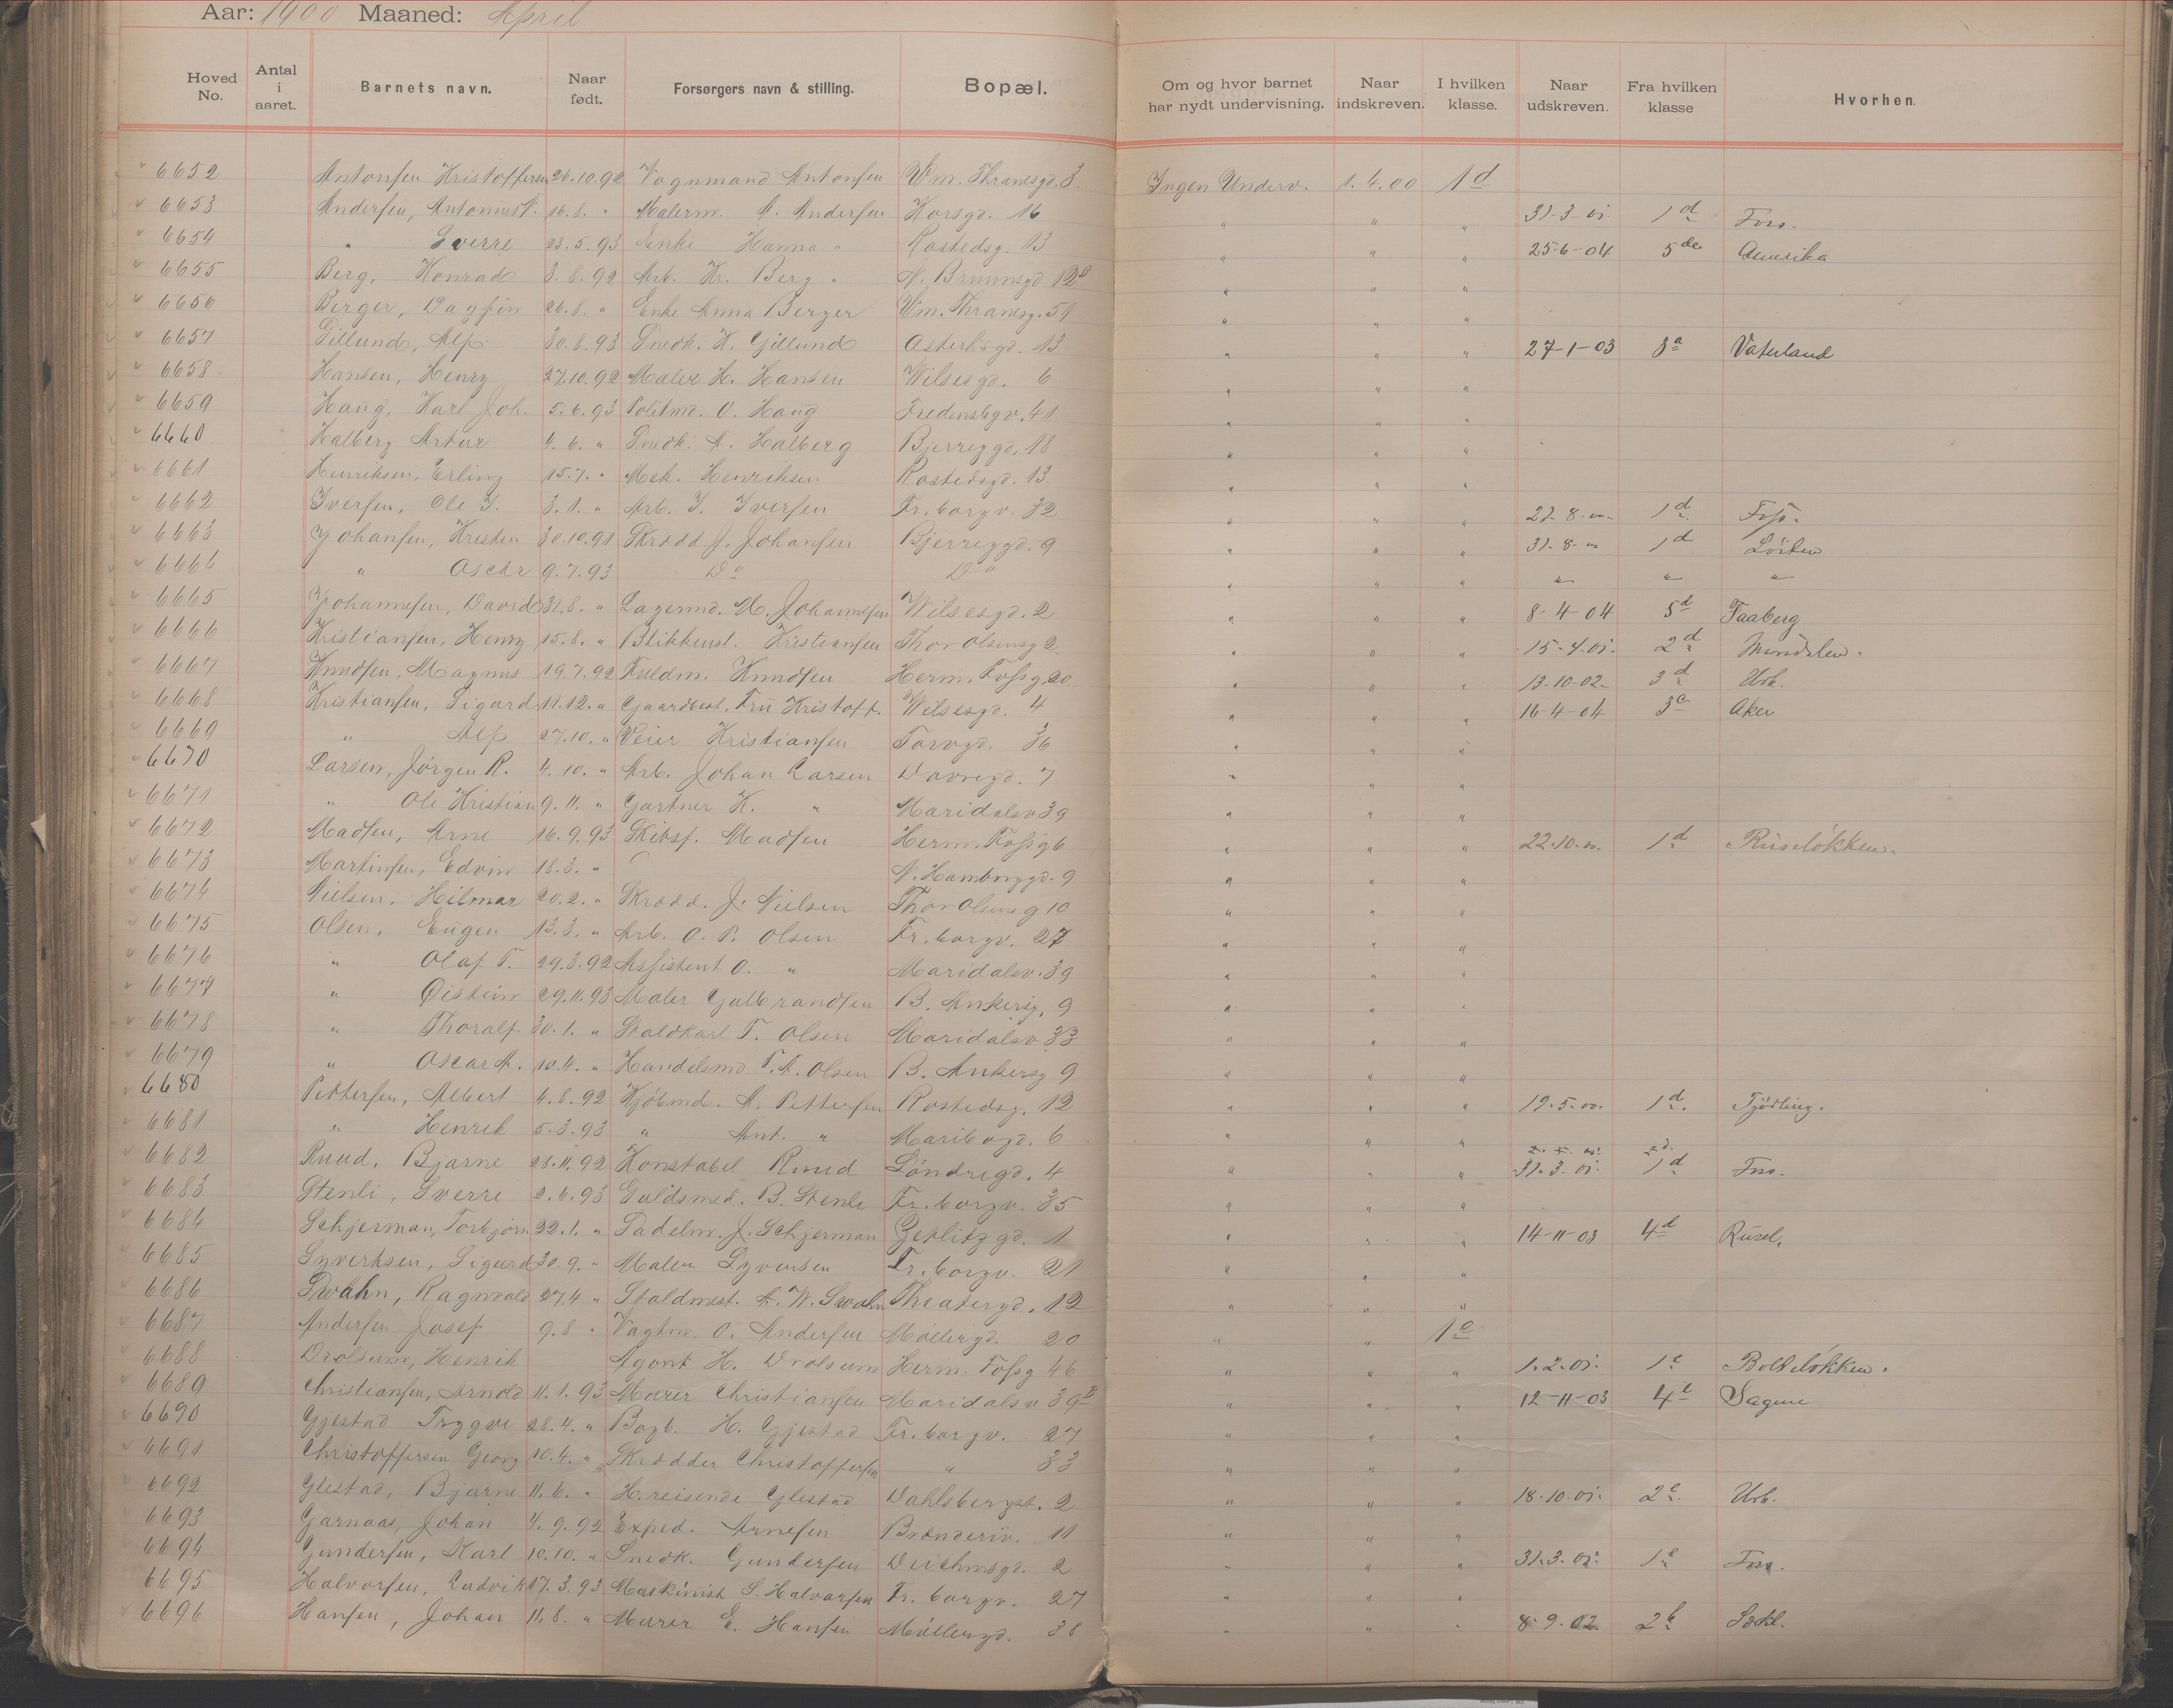 Aar: 1900 Maaned: April
Hoved No. Antal i aaret. Barnets navn. Naar født. Forsørgers navn & stilling. Bopæl. Om og hvor barnet har nydt undervisning. Naar indskreven. I hvilken klasse. Naar udskreven. Fra hvilken klasse Hvorhen.
6652 Antonsen Kristoffersen 26.10.92 Vognmand Antonsen Wm. Thranesgd. 3. Ingen Underv. 1.4.00 1d
6653 Andersen, Antonius 16.8. " Malerm. A. Andersen Korsgd. 16 " " " 31-3-01. 1d Foss.
6654 " Sverre 23.5.93 Enke Hanna " Rostedsg. 13 " " " 25-6-04 5de Amerika
6655 Berg, Konrad 3.8.92 Arb. Kr. Berg " N. Brunnsgd 12B " " "
6656 Berger, Dagfin 26.8. " Enke Anna Berger Wm. Thranesg. 51 " " "
6657 Gillund, Alf 30.8.93 Snedk. K. Gillund Osterhsgd. 13 " " " 27-1-03 3a Vaterland
6658 Hansen, Henry 27.10.92 Maler H. Hansen Wilsesgd. 6 " " "
6659 Haug, Karl Joh. 5.6.93 Politmd. O. Haug Fredensbgv. 41 " " "
6660 Halberg Artur 4.6. " Snedk. A. Halberg Bjerregd. 18 " " "
6661 Henriksen, Erling 15.7. " Mek. Henriksen Rostedsgd. 13 " " "
6662 Iversen, Ole I. 3.1. " Arb. I. Iversen Fr. borgv. 32 " " " 21-8-00 1d Foss.
6663 Johansen, Kristen 30.10.91 Skrædd. J. Johansen Bjerreggd. 9 " " " 31-8-00 1d Löiten
6664 " Oscar 9.7.93 Do Do " " " " " "
6665 Johannesen, David 31.8. " Lagermd. M. Johannesen Wilsesgd. 2 " " " 8-4-04 5d Faaberg
6666 Kristiansen, Henry 15.8. " Blikkensl. Kristiansen Thor Olsensg 2 " " " 15-4-01. 2d Møndalen.
6667 Knudsen, Magnus 19.7.92 Fuldm. Knudsen Herm. Fossg 20 " " " 13-10-02- 3d Urb.
6668 Kristiansen, Sigurd 11.12. " Gaardbest. Fru Kristoff. Wilsesgd. 4 " " " 16-4-04 3c Aker
6669 " Alf 27.10. " Veier Kristiansen Torvgd. 36 " " "
6670 Larsen, Jörgen R. 4.10. " Arb. Johan Larsen Dovregd. 7 " " "
6671 " Ole Kristian 9.11. " Gartner K. " Maridalsv 39 " " "
6672 Madsen, Arne 16.9.93 Skibsf. Madsen Herm. Fossg 6 " " " 22-10-00. 1d Ruseløkken.
6673 Martinsen, Edvin 18.3. " N. Hambrogd. 9 " " "
6674 Nielsen, Hilmar 20.2. " Skrædd. J. Nielsen Thor Olsens g 10 " " "
6675 Olsen, Eugen 13.3. " Arb. O. P. Olsen Fr. borgv. 27 " " "
6676 " Olaf T. 29.3.92 Assistent O. " Maridalsv. 39 " " "
6677 " Öistein 29.11.93 Maler Gulbrandsen B. Ankersg. 9 " " "
6678 " Thoralf 30.1. " Staldkarl T. Olsen Maridalsv. 33 " " "
6679 " Oscar A. 10.4. " Handelsmd T. A. Olsen B. Ankersg 9 " " "
6680 Pettersen, Albert 4.8.92 Kjöbmd. A. Pettersen Rostedsg. 12 " " " 19-5-00. 1d. Tjödling.
6681 " Henrik 5.3.93 " Ant. " Maribogd. 6 " " "
6682 Ruud, Bjarne 28.11.92 Konstabel Ruud Söndregd. 4 " " " 31-3-01. 1d Foss.
6683 Stenli, Sverre 2.6.93 Guldsmed. B. Stenli Fr. borgv. 35 " " "
6684 Schjerman, Torbjörn 22.1. " Sadelm. J. Schjerman Geplitz gd. 1 " " " 14-11-03 4d Rusel.
6685 Syvertsen, Sigurd 30.9. " Maler Syversen Fr. borgv. 21 " " "
6686 Swahn, Ragnvald 27.4 " Staldmest. A. W. Swahn Theatergd. 12 " " "
6687 Andersen Josef 9.8 " Vagtm. O. Andersen Möllergd. 20 " " 1e
6688 Drolsum, Henrik Agent H. Drolsum Herm. Fossg 46 " " " 1.2.01. 1e Bolteløkken.
6689 Christiansen, Arnold 11.1.93 Murer Christiansen Maridalsv 39B " " " 12-11-03 4e Sagene
6690 Gjestad Trygve 28.4. " Bogb. H. Gjestad Fr. borgv. 27 " " "
6691 Christoffersen Georg 10.4. " Skrædder Christoffersen " 33 " " "
6692 Glestad, Bjarne 11.6. " H.reisende Glestad Dahlsbergst. 2 " " " 18-10-01. 2e Urb.
6693 Garnaas, Johan 4.9.92 Exped. Arnesen Brænderiv. 11 " " "
6694 Gundersen, Karl 10.10. " Snedk. Gundersen Deichmsgd. 2 " " " 31-3-01. 1e Foss.
6695 Halvorsen, Ludvik 17.3.93 Maskinist S. Halvorsen Fr. borgv. 27 " " "
6696 Hansen, Johan 11.8. " Murer E. Hansen Möllergd. 38 " " " 8-9-02 2b Sökl.